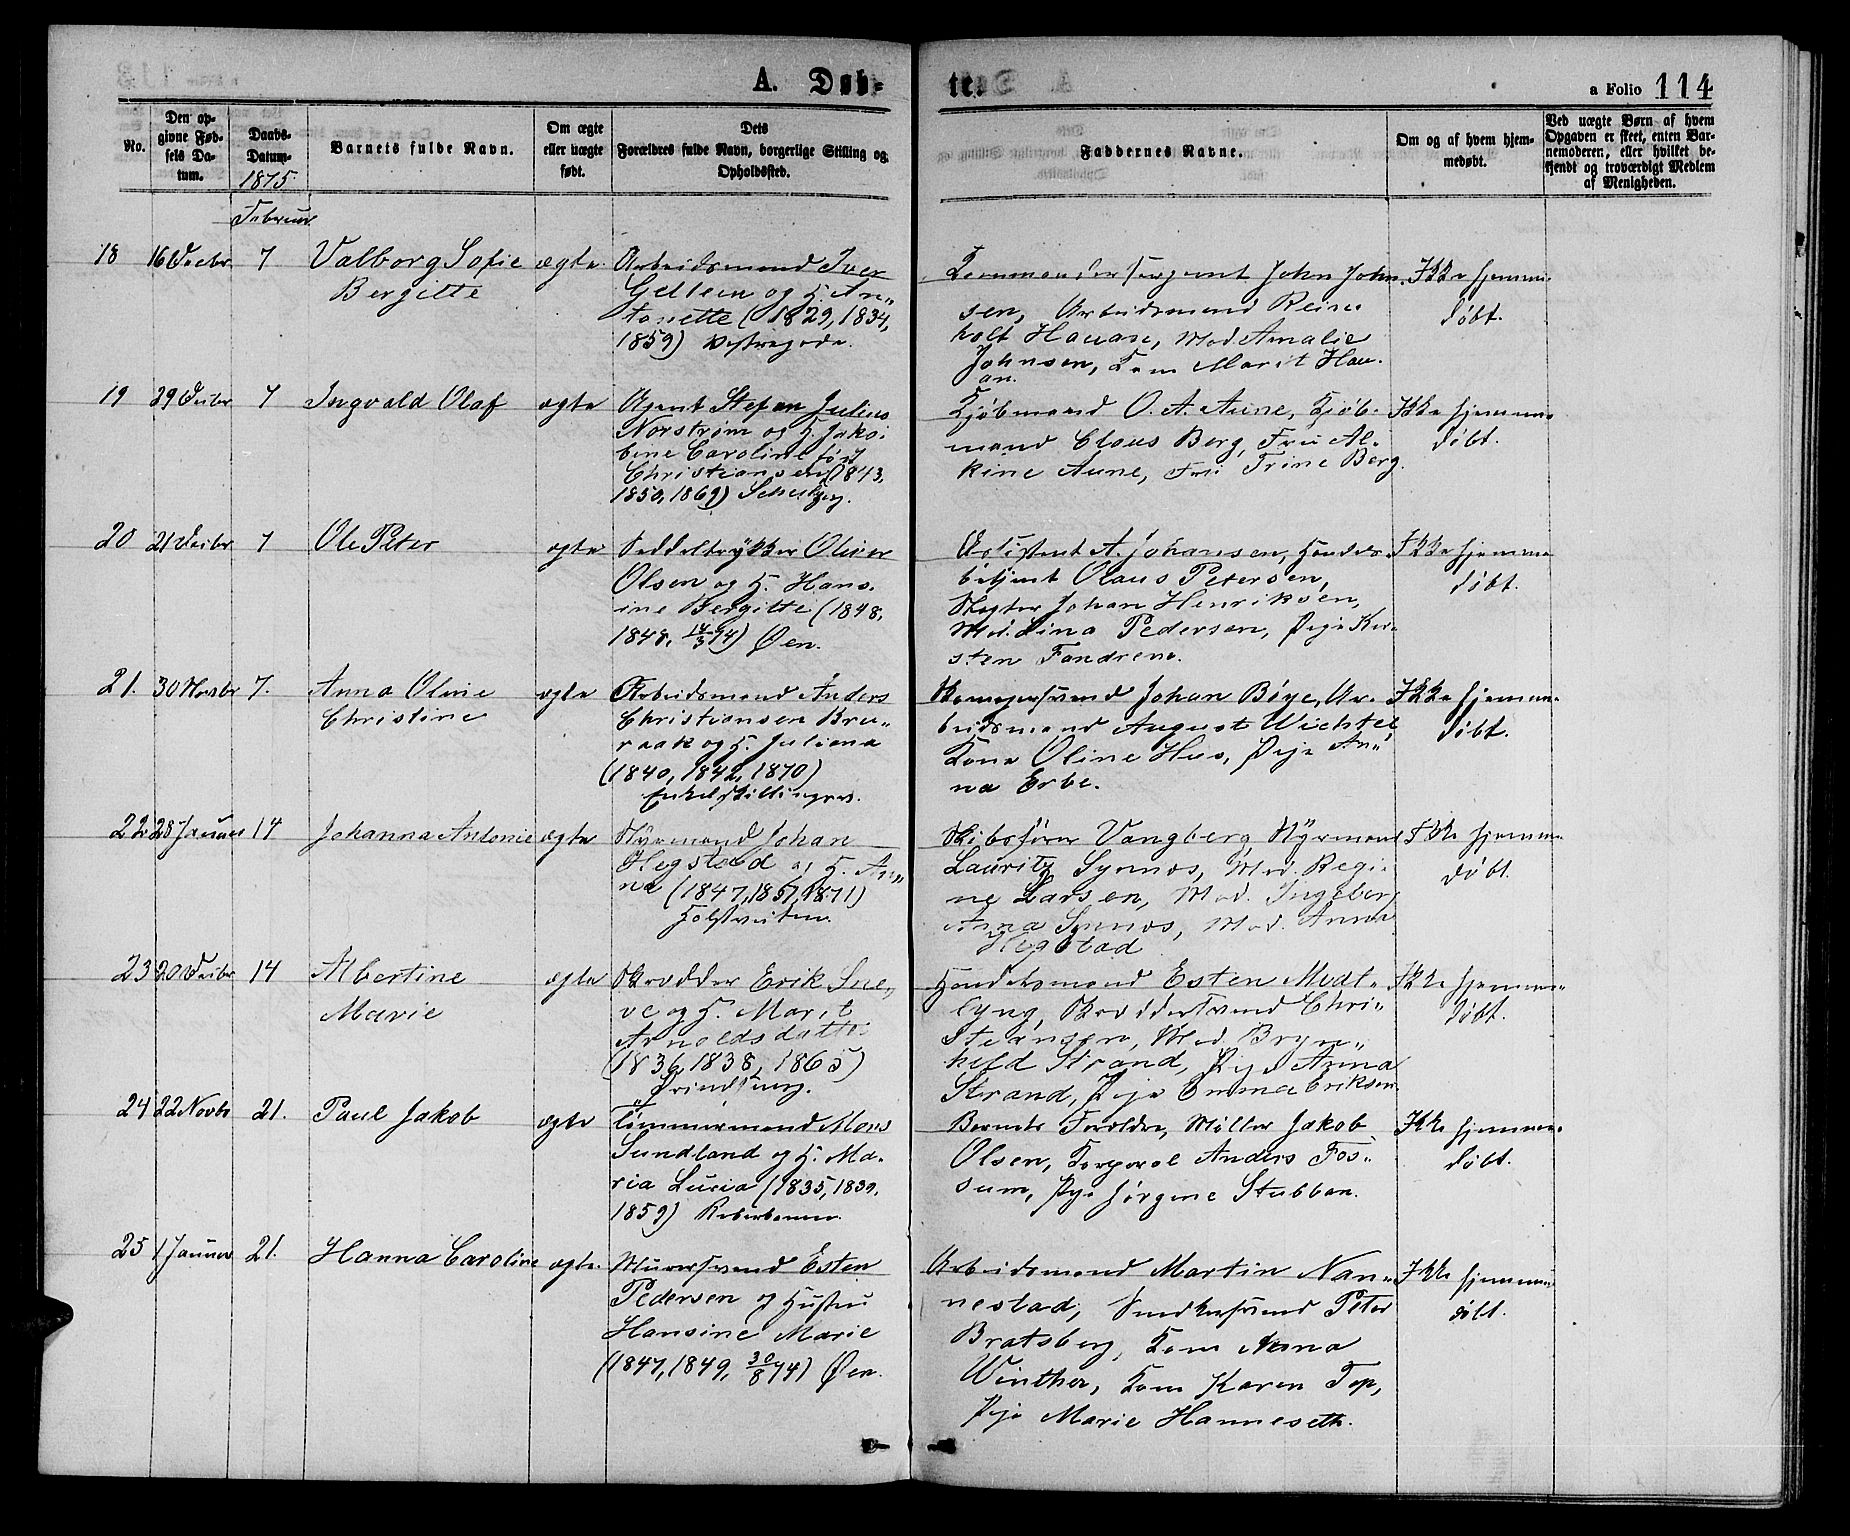 A. Døb-
te.
a Folio 114
No.
Den op-
givne Fød-
sels Da-
tum.
Daabs-
Datum.
1875
Barnets fulde Navn.
Om ægte
eller uægte
født.
Dets
Forældres fulde Navn, borgerlige Stilling og
Opholdssted.
Faddernes Navne.
Om og af hvem hjem-
medøbt.
Ved uægte Børn af hvem
Opgaven er skeet, enten Bar-
nemoderen, eller hvilket be-
kjendt og troværdigt Medlem
af Menigheden.
Februar
18 16 Decbr 7 Valborg Sofie ægte Arbeidsmand Iver
Bergitte
Gellein og H. An-
tonette (1829, 1834,
1859)
Johnsen
sen, Arbeidsmand Rein-
holt Hauan, Mad Amalie
Johnsen, Kone Marit Hau-
an.
Ikke hjemme-
døbt.
19 29 Decbr 7 Ingvald Olaf ægte Agent Stefan Julius
Norstrøm og H. Jako-
bine Caroline født
Christiansen (1843,
1850, 1869)
Kjøbmand O. A. Aune, Kjøb-
mand Claus Berg, Fru Al-
kine Aune, Fru Trine Berg.
Ikke hjemme-
døbt.
20 21 Decbr 7 Ole Peter ægte Seddeltrykker Oliver
Olsen og H. Hans-
ine Bergitte (1848,
1848, 14/3 74) Øen.
Assistent A. Johansen, Handels-
betjent Olaus Petersen,
Johan Henriksen,
Mad. Lina Pedersen, Pige Kir-
sten Fandrem.
Ikke hjemme
døbt.
21. 30 Novbr 7. Anna Oline ægte Arbeidsmand Anders
Christine
Christiansen Bru-
raak og H. Juliana
(1840, 1842, 1870)
Enkelskillingsv.
Johan Bøye, Ar-
beidsmand August Wichstel
Kone Oline Hus, Pige An-
na Erbe.
Ikke hjemme-
døbt.
22 28 Januar 14 Johanna Antonie ægte Styrmand Johan
Hegstad og H. An-
na (1847, 1851, 1871)
Holstveiten.
Skibsfører Vangberg, Styrmand
Lauritz Synnos, Mad. Regi-
ne Larsen, Mad. Ingeborg
Anna Synnos, Mad. Anna
Hegstad
Ikke hjemme-
døbt.
23 20 Decbr 14 Albertine ægte Skrædder Erik Sne-
Marie
ve og H. Marit
Arnoldsdatter
(1836, 1838, 1865)
Prindsensg.
Handelsmand Esten Midt-
lyng, Skræddersvend Chri-
stiansen, Mad. Bryn-
hild Strand, Pige Anna
Strand, Pige Emma Eriksen
Ikke hjemme-
døbt.
24 22 Novbr 21. Paul Jakob ægte Tømmermand Mons
Sundland og H. Ma-
ria Lucia (1835, 1839,
1859) Reberbanen.
Barnets Forældre, Møller Jakob
Olsen, Korporal Anders Fos-
sum, Pige Jørgine Stubban.
Ikke hjemme-
døbt.
25 1 Januar 21. Hanna Caroline ægte Murersvend Esten
Pedersen og Hustru
Hansine Marie
(1847, 1849, 30/8 74) Øen.
Arbeidsmand Martin Nan-
nestad, Snedkersvend Peter
Bratsberg, Kone Anna
Winther, Kone Karen Top,
Pige Marie Hanneseth.
Ikke hjemme-
døbt.